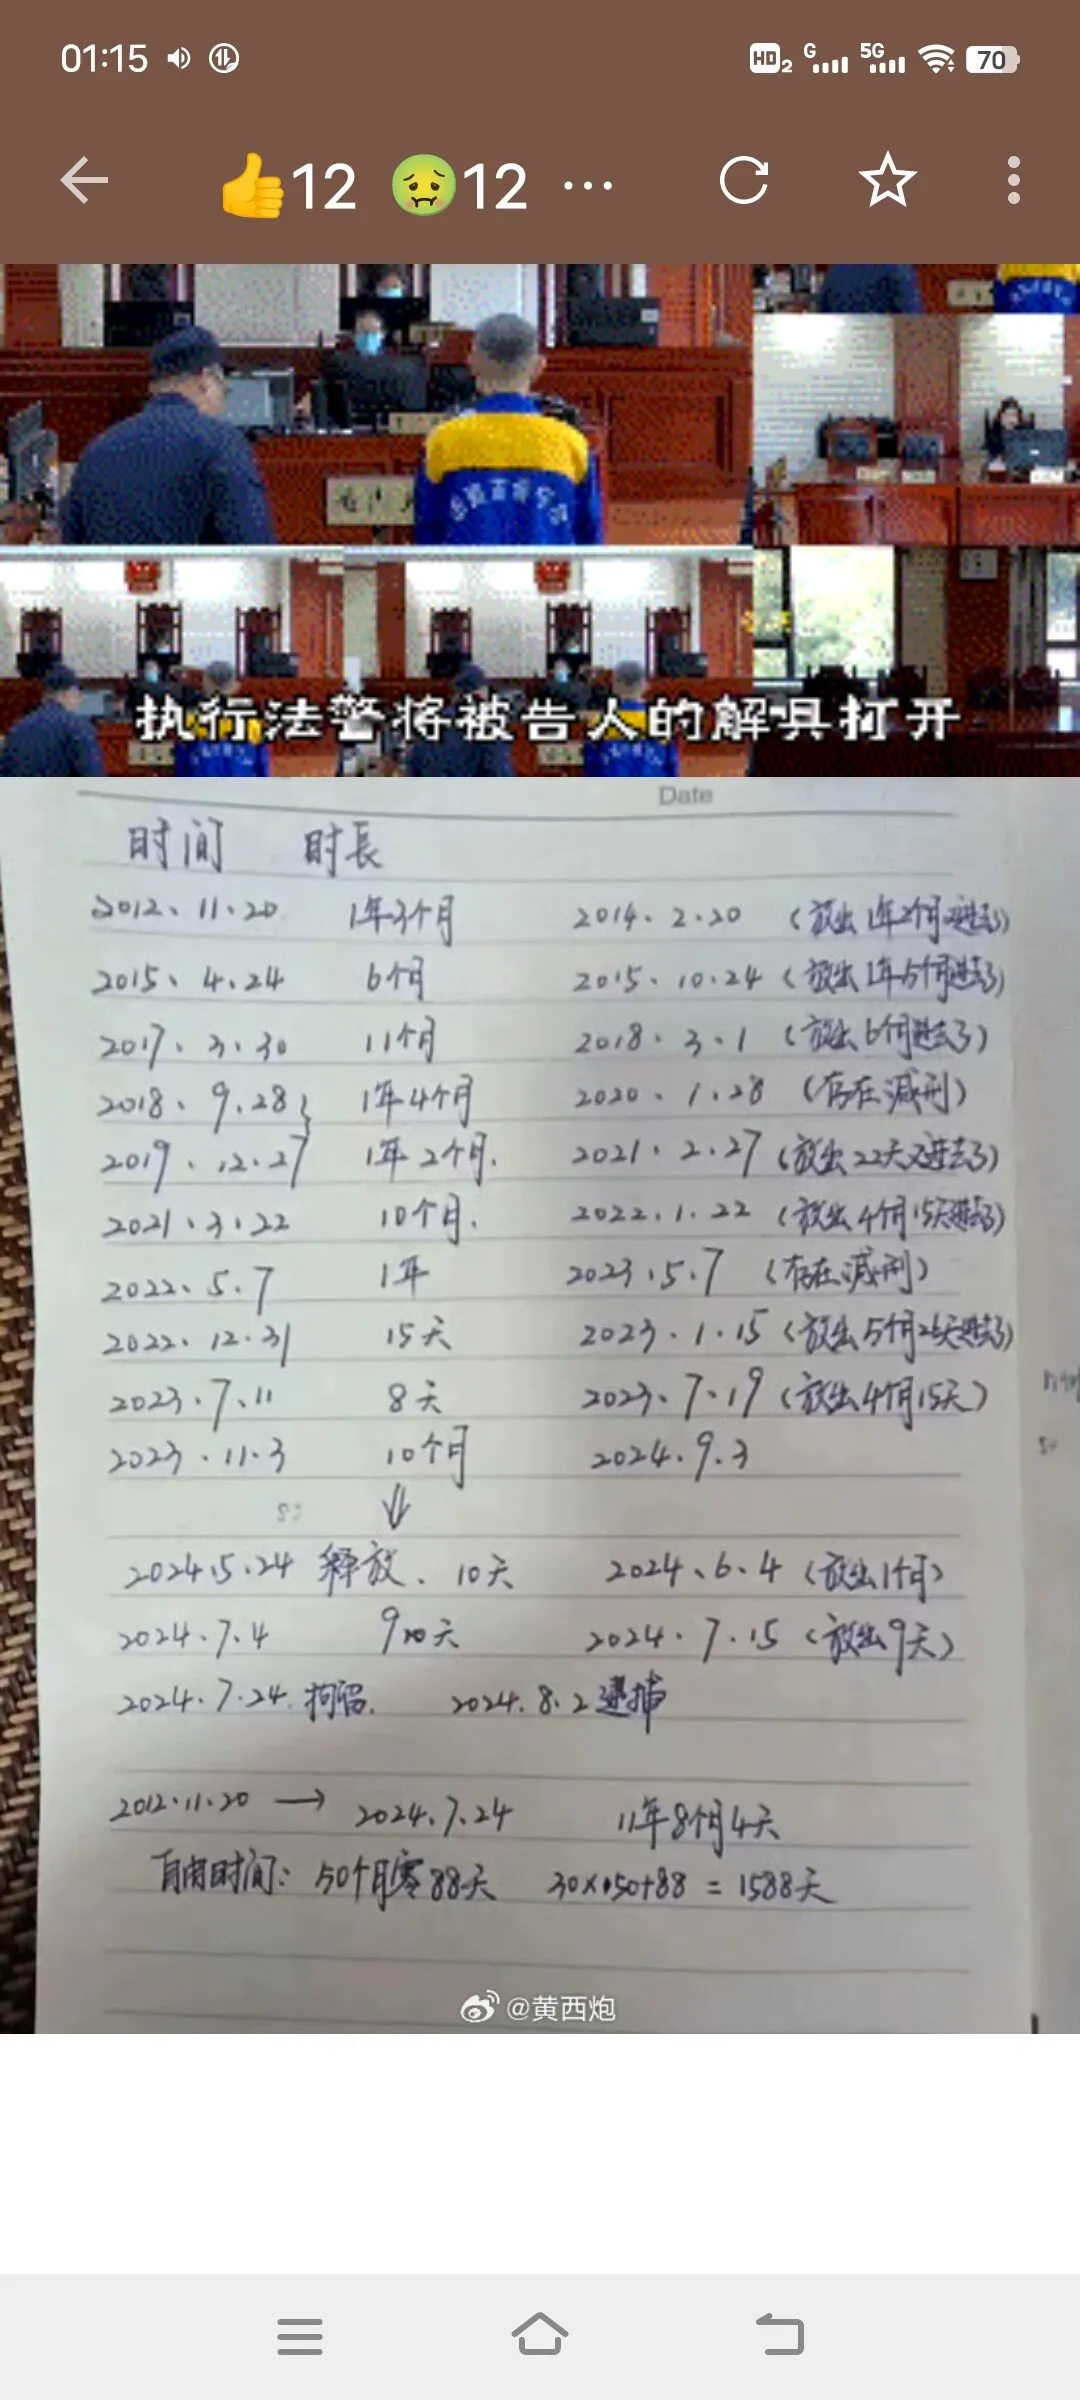 01:15
HD 2 G 5G 70
👍12 🤢12 ...
执行法警将被告人的解具打开
Date
时间 时長
2012、11.20 1年3个月 2014、2.20 (放出1年2个月又进去了)
2015、4.24 6个月 2015、10.24 (放出1年5个月进去了)
2017、3.30 11个月 2018、3、1 (放出6个月进去了)
2018、9.28 1年4个月 2020、1.28 (存在减刑)
2019、12.27 1年2个月. 2021、2.27 (放出22天又进去了)
2021、3.22 10个月. 2022.1.22 (放出4个月15天进去了)
2022、5.7 1年 2023.5.7 (存在减刑)
2022、12.31 15天 2023.1.15 (放出5个月26天进去了)
2023.7.11 8天 2023.7.19 (放出4个月15天)
2023.11.3 10个月 2024.9.3
↓
2024.5.24 释放、10天 2024、6.4 (放出1个月)
2024.7.4 天 2024.7.15 (放出9天)
2024.7.24.拘留. 2024.8.2逮捕
2012.11.20 → 2024.7.24 11年8个月4天
自由时间: 50个月零88天 30×50+88=1588天
@黄西炮